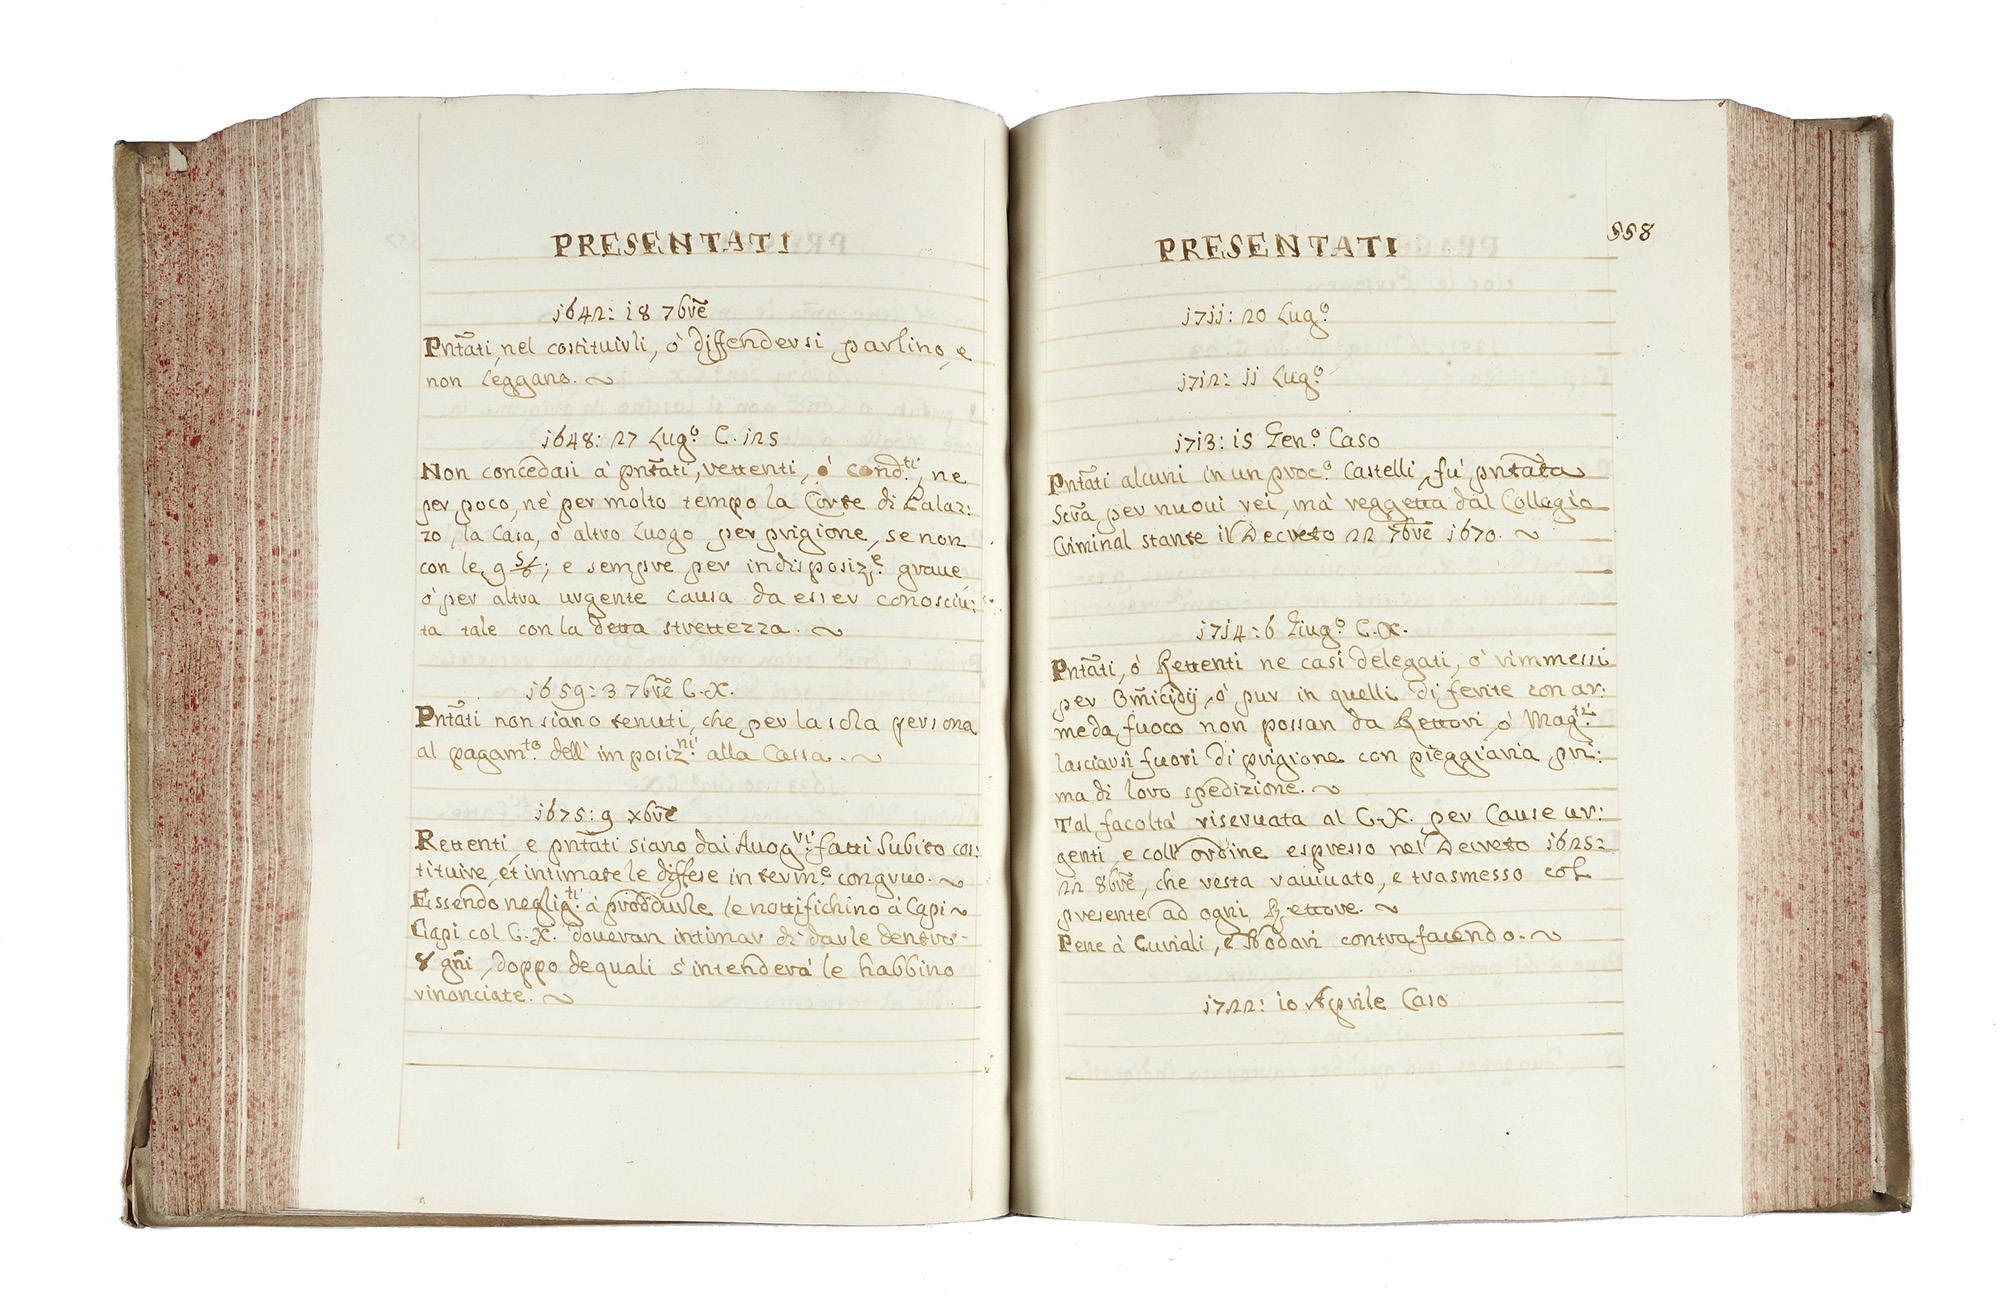 PRESENTATI
1642: 18 7bre
Pntati, nel costituirli, ò diffendersi parlino, e
non leggano.
1648: 27 Lugo. C. 125
Non concedasi à pntati, rettenti, ò condti, ne
per poco, nè per molto tempo la Corte di Palaz:
zo, la Casa, ò altro Luogo per prigione, se non
con le 9 5/6; e sempre per indisposiz.e graue
ò per altra urgente causa da esser conosciu:
ta tale con la detta strettezza.
1659: 3 7bre C.X.
Pntati non siano tenuti, che per la sola persona
al pagamto. dell' imposizni. alla Cassa.
1675: 9 xbre
Rettenti e pntati siano dai Auogri. fatti subito cos:
tituire, et intimate le diffese in term.e congruo.
Essendo negligti. à produrle le nottifichino à Capi
Capi col C.X. doueran intimar di darle dentro
8 gni, doppo de quali s'intenderà le habbino
rinonciate.
PRESENTATI
558
1711: 20 Lugo
1712: 11 Lugo
1713: 15 Geno. Caso
Pntati alcuni in un proco. Castelli, fù pntata
Scra per nuoui rei, mà reggetta dal Collegio
Criminal stante il Decreto 22 7bre 1670.
1714: 6 Giugo. C.X.
Pntati, ò Rettenti ne casi delegati, ò rimmessi
per Omicidij, ò pur in quelli di ferite con ar:
me da fuoco non possan da Rettori ò Magti.
lasciarsi fuori di prigione con pieggiaria pri:
ma di loro spedizione.
Tal facoltà riseruata al C.X. per Cause ur:
genti, e coll'ordine espresso nel Decreto 1625:
22 8bre, che resta rauiuato, e trasmesso col
presente ad ogni Rettore.
Pene à Curiali, e Nodari contrafacendo.
1722: 10 Aprile Caso